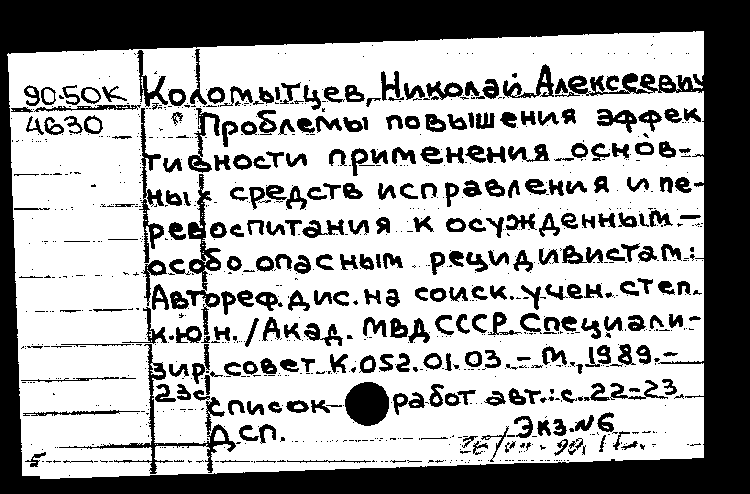 90-50К Коломытцев, Николай Алексеевич
4630 Проблемы повышения эффек
тивности применения основ-
ных средств исправления и пе-
ревоспитания к осужденным —
особо опасным рецидивистам:
Автореф. дис. на соиск. учен. степ.
к.ю.н. / Акад. МВД СССР. Специали-
зир. совет К.052.01.03. – М., 1989. –
23с
список работ авт.: с. 22-23.
ДСП. Экз. №6
5